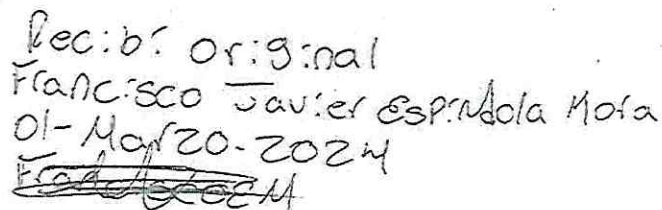 Recibí original
Francisco Javier Espindola Mora
01-Marzo-2024